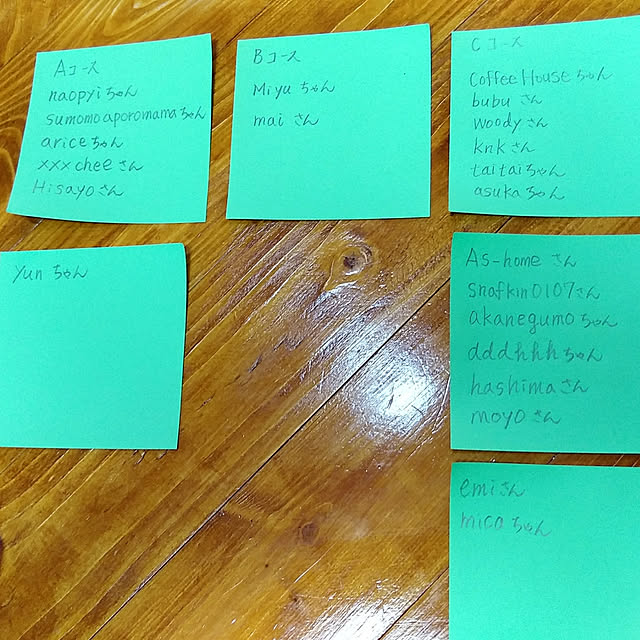 Aコース
naopyiちゃん
sumomoaporomamaちゃん
ariceちゃん
xxxcheeさん
Hisayoさん
Yunちゃん
Bコース
Miyuちゃん
maiさん
Cコース
CoffeeHouseちゃん
bubuさん
woodyさん
knkさん
taitaiちゃん
asukaちゃん
As-homeさん
snafkin0107さん
akanegumoちゃん
dddhhhちゃん
hashimaさん
moyoさん
emiさん
micaちゃん